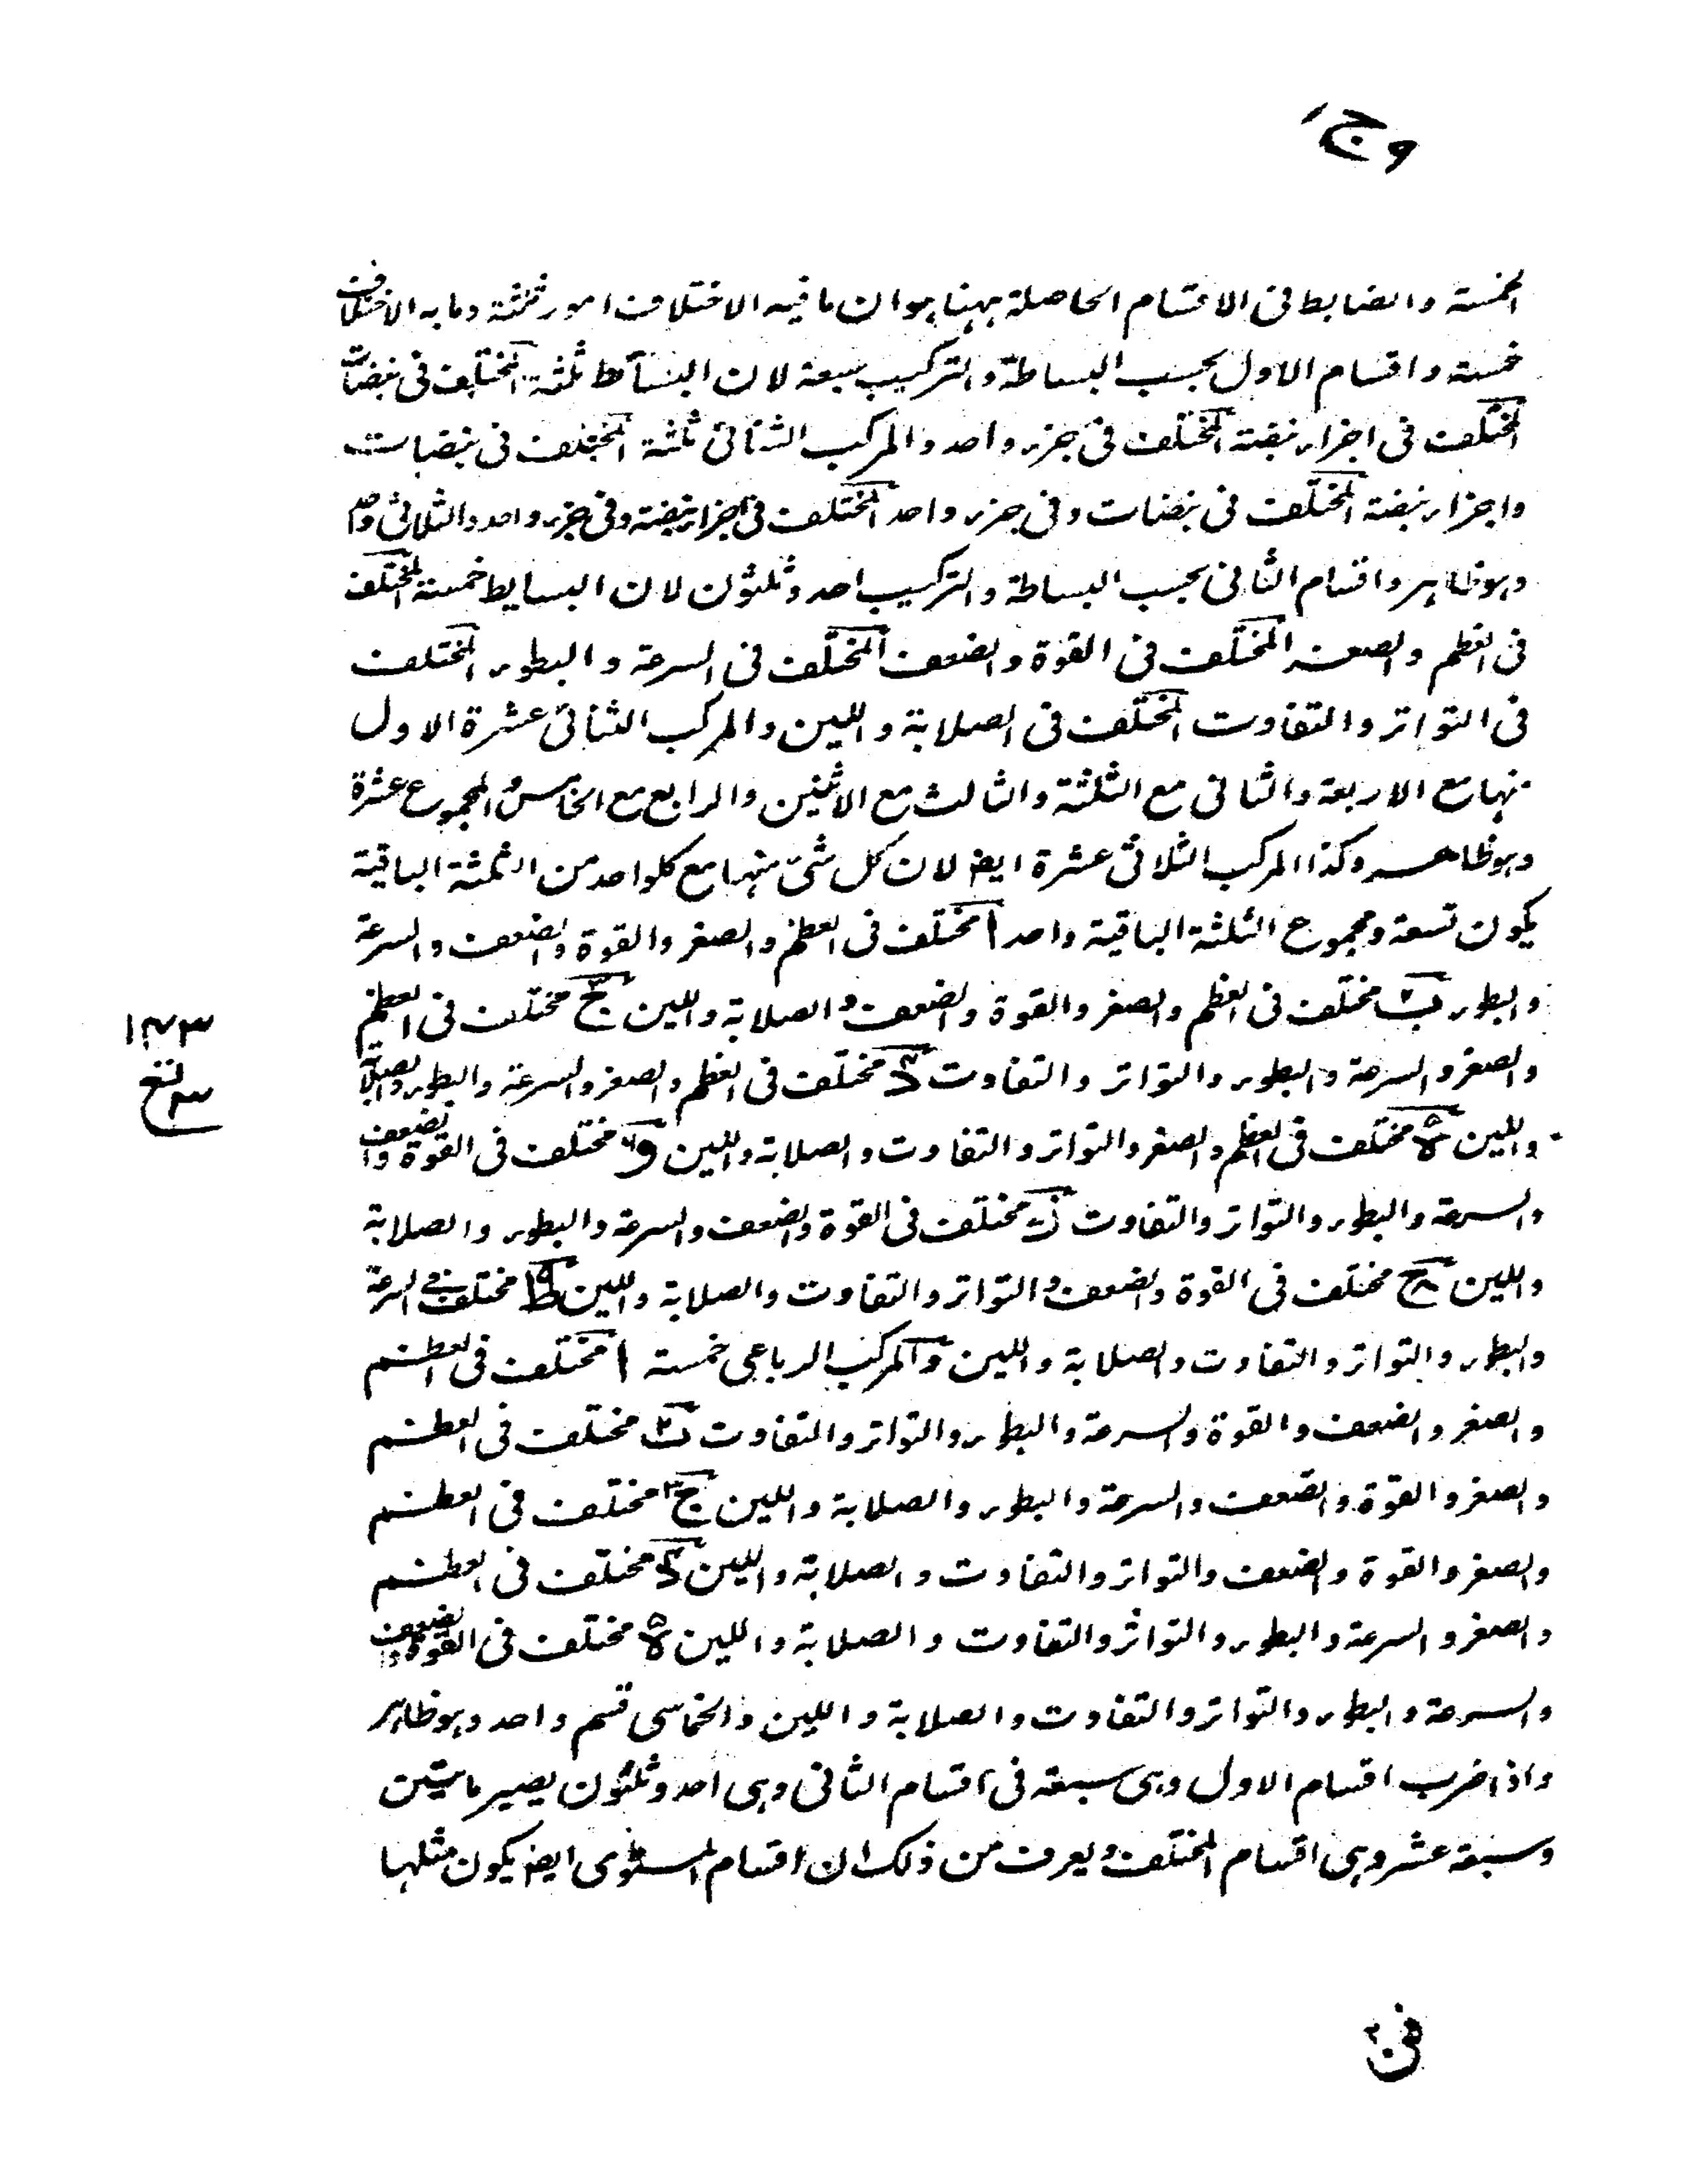 وج
الخمسة والضابط فى الاقسام الحاصلة ههنا هو ان ما فيه الاختلاف امور ثلثة وما به الاختلاف
خمسة واقسام الاول بحسب البساطة والتركيب سبعة لان البسائط ثلثة المختلف فى نبضات
المختلف فى اجزاء نبضة المختلف فى جزء واحد والمركب الثنائى ثلثة المختلف فى نبضات
واجزاء نبضة المختلف فى نبضات وفى جزء واحد المختلف فى اجزاء نبضة وفى جزء واحد والثلاثى واحد
وهو ظاهر واقسام الثانى بحسب البساطة والتركيب احد وثلثون لان البسايط خمسة المختلف
فى العظم والصغر المختلف فى القوة والضعف المختلف فى السرعة والبطوء المختلف
فى التواتر والتفاوت المختلف فى الصلابة واللين والمركب الثنائى عشرة الاول
منها مع الاربعة والثانى مع الثلثة والثالث مع الاثنين والرابع مع الخامس والمجموع عشرة
وهو ظاهر وكذا المركب الثلاثى عشرة ايض لان كل شئ منها مع كلواحد من الثلثة الباقية
يكون تسعة ومجموع الثلثة الباقية واحد ا مختلف فى العظم والصغر والقوة والضعف والسرعة
والبطوء ب٢ مختلف فى العظم والصغر والقوة والضعف والصلابة واللين ج٣ مختلف فى العظم
والصغر والسرعة والبطوء والتواتر والتفاوت د٤ مختلف فى العظم والصغر والسرعة والبطوء والصلابة
واللين ه٥ مختلف فى العظم والصغر والتواتر والتفاوت والصلابة واللين و٦ مختلف فى القوة والضعف
والسرعة والبطوء والتواتر والتفاوت ز٧ مختلف فى القوة والضعف والسرعة والبطوء والصلابة
واللين ح٨ مختلف فى القوة والضعف والتواتر والتفاوت والصلابة واللين ط٩ مختلف فى السرعة
والبطوء والتواتر والتفاوت والصلابة واللين والمركب الرباعى خمسة ا مختلف فى العظم
والصغر والضعف والقوة والسرعة والبطوء والتواتر والتفاوت ب٢ مختلف فى العظم
والصغر والقوة والضعف والسرعة والبطوء والصلابة واللين ج٣ مختلف فى العظم
والصغر والقوة والضعف والتواتر والتفاوت والصلابة واللين د٤ مختلف فى العظم
والصغر والسرعة والبطوء والتواتر والتفاوت والصلابة واللين ه٥ مختلف فى القوة والضعف
والسرعة والبطوء والتواتر والتفاوت والصلابة واللين والخماسى قسم واحد وهو ظاهر
واذا ضرب اقسام الاول وهى سبعة فى اقسام الثانى وهى احد وثلثون يصير مايتين
وسبعة عشر وهى اقسام المختلف ويعرف من ذلك ان اقسام المستوى ايض يكون مثلها
١٤٣
فن